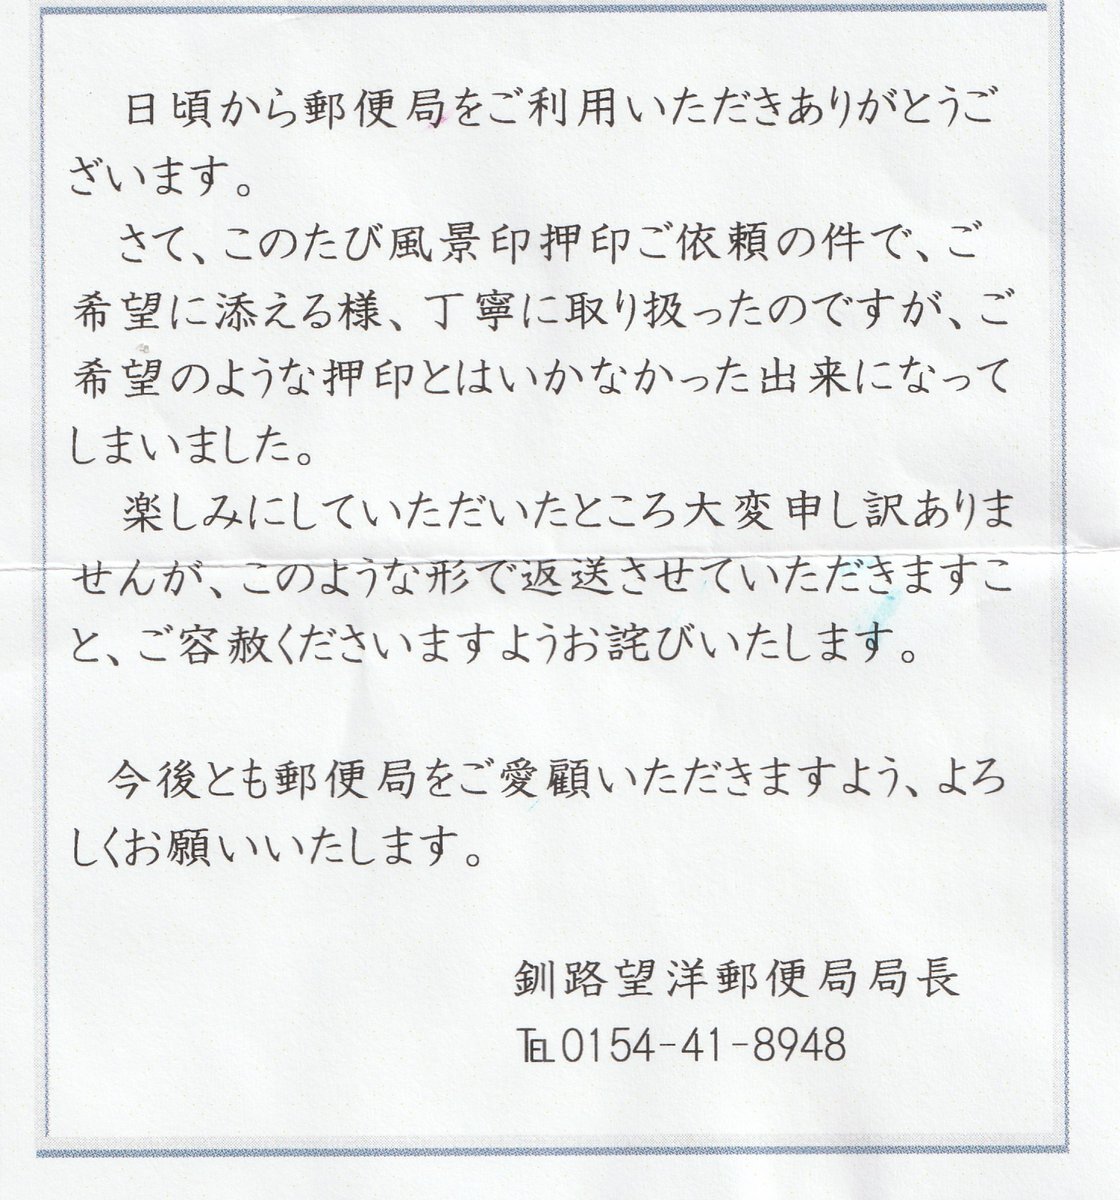 日頃から郵便局をご利用いただきありがとうご
ざいます。
さて、このたび風景印押印ご依頼の件で、ご
希望に添える様、丁寧に取り扱ったのですが、ご
希望のような押印とはいかなかった出来になって
しまいました。
楽しみにしていただいたところ大変申し訳ありま
せんが、このような形で返送させていただきますこ
と、ご容赦くださいますようお詫びいたします。
今後とも郵便局をご愛顧いただきますよう、よろ
しくお願いいたします。
釧路望洋郵便局局長
℡0154-41-8948